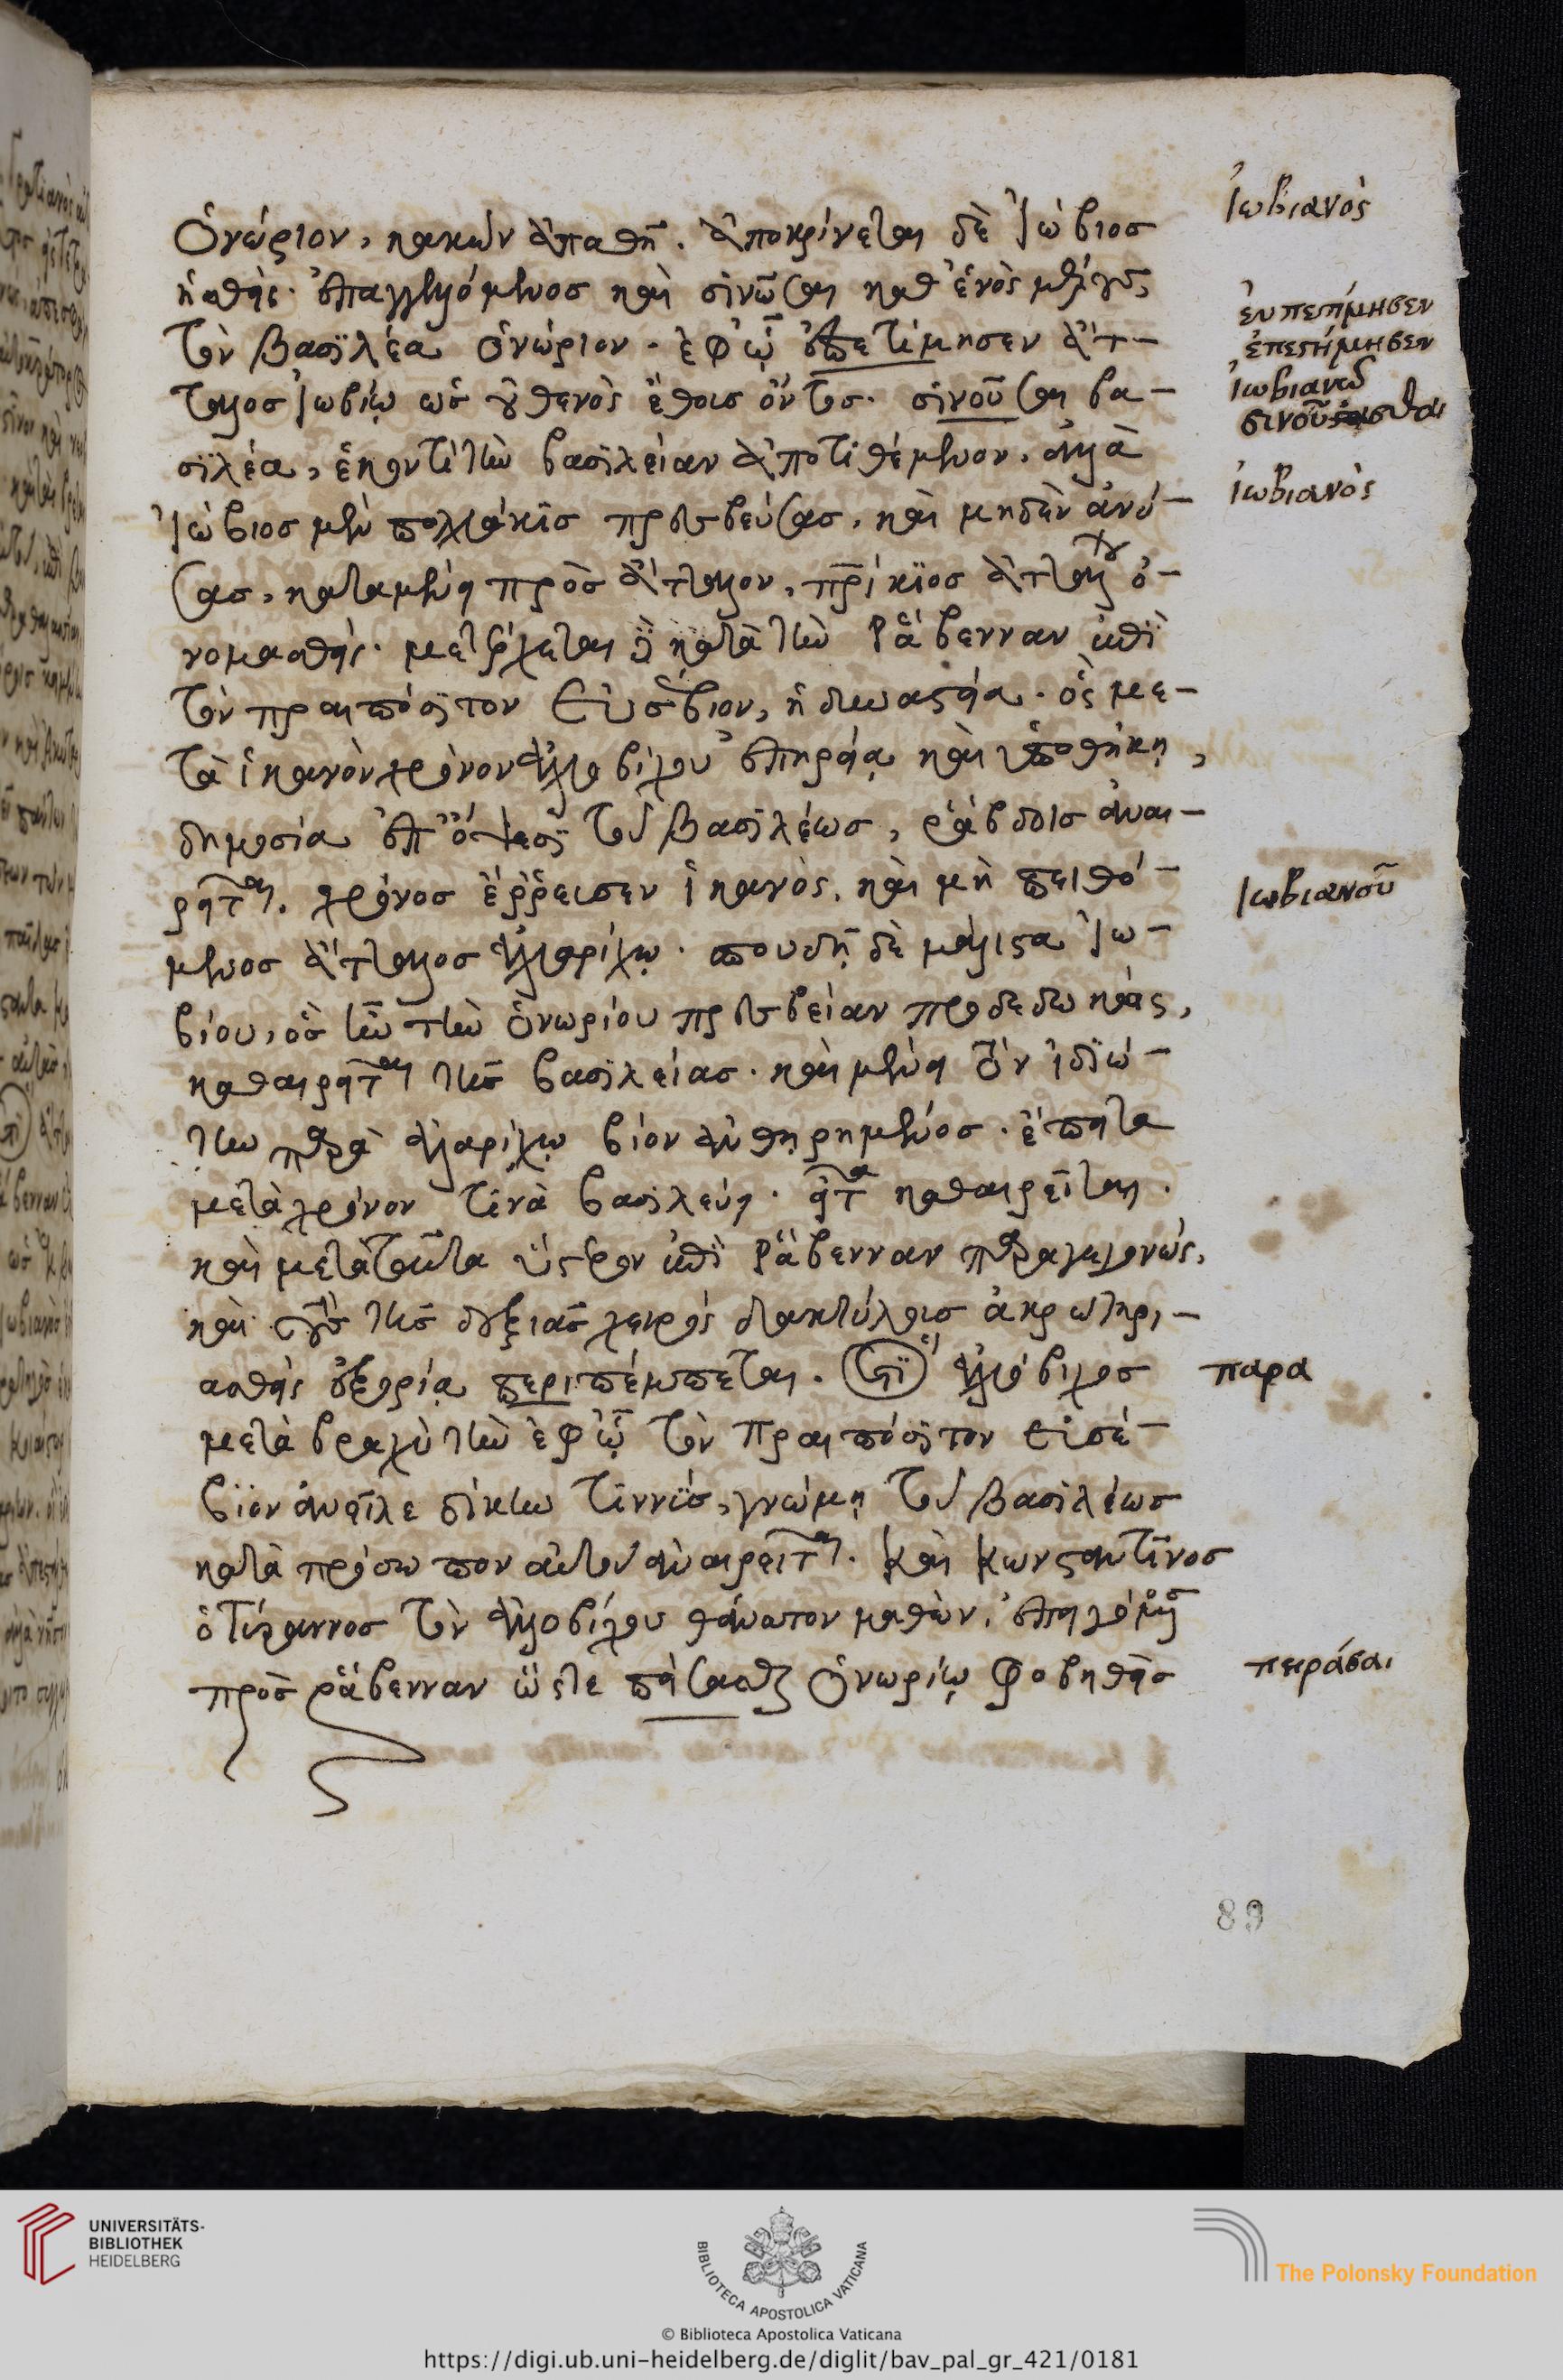 Ὁνώριον, κακῶν ἀπαθῆ. ἀποκρίνεται δὲ Ἰώβιος
ἡσθεὶς· ἐπαγγελλόμενος καὶ σινῶσαι καθ' ἑνὸς μέλους
τὸν βασιλέα ὁνώριον. ἐφ' ᾧ ἐπετίμησεν ἄτ-
ταλος Ἰωβίῳ ὡς οὐθενὸς ἔθους ὄντος. σινοῦσαι βα-
σιλέα, ἑκοντὶ τὴν βασιλείαν ἀποτιθέμενον. ἀλλὰ
Ἰώβιος μὲν πολλάκις πρεσβεύσας, καὶ μηδὲν ἀνύ-
σας, καταμένει πρὸς ἄτταλον, πατρίκιος ἀττάλου ὀ-
νομασθείς· μετέρχεται δὲ κατὰ τὴν Ῥάβενναν ἐπὶ
τὸν πραιπόσιτον Εὐσέβιον, ἡ δυναστεία. ὃς με-
τὰ ἱκανὸν χρόνον ἀλλοβίχου ἐπηρείᾳ καὶ ὑποθήκῃ,
δημοσία ἐπ' ὄψεσι τοῦ βασιλέως, ῥάβδοις ἀναι-
ρεῖται. χρόνος ἔρρευσεν ἱκανὸς, καὶ μὴ πειθό-
μενος ἄτταλος ἀλλαρίχῳ. σπουδῇ δὲ μάλιστα Ἰω-
βίου, ὃς ἦν τὴν ὁνωρίου πρεσβείαν προδεδωκὼς,
καθαιρεῖται τῆς βασιλείας. καὶ μένει τὸν ἰδιώ-
την παρὰ ἀλαρίχῳ βίον ἀνθῃρημένος. ἔπειτα
μετὰ χρόνον τινὰ βασιλεύει. εἶτα καθαιρεῖται.
καὶ μετὰ ταῦτα ὕστερον ἐπὶ Ῥάβενναν παραγεγονὼς,
καὶ τοὺς τῆς δεξιᾶς χειρὸς δακτύλους ἀκρωτηρι-
ασθεὶς ἐξορίᾳ περιπέμπεται. ὅτι ἀλλόβιχος
μετὰ βραχὺ τὴν ἐφ' ᾧ τὸν πραιπόσιτον εὐσέ-
βιον ἀνεῖλε δίκην τιννύς, γνώμῃ τοῦ βασιλέως
κατὰ πρόσωπον αὐτοῦ ἀναιρεῖται. Καὶ Κωνσταντῖνος
ὁ τύραννος τὸν ἀλλοβίχου θάνατον μαθὼν, ἐπειγόμενος
πρὸς ῥάβενναν ὥστε σπείσασθαι ὁνωρίῳ φοβηθεὶς
Ἰωβιανὸς
ἐνπεπίμησεν
ἐπετίμησεν
Ἰωβιανῷ
σινοῦσασθαι
Ἰωβιανὸς
Ἰωβιανοῦ
παρα
πειράσαι
89
UNIVERSITÄTS-
BIBLIOTHEK
HEIDELBERG
BIBLIOTECA APOSTOLICA VATICANA
The Polonsky Foundation
© Biblioteca Apostolica Vaticana
https://digi.ub.uni-heidelberg.de/diglit/bav_pal_gr_421/0181